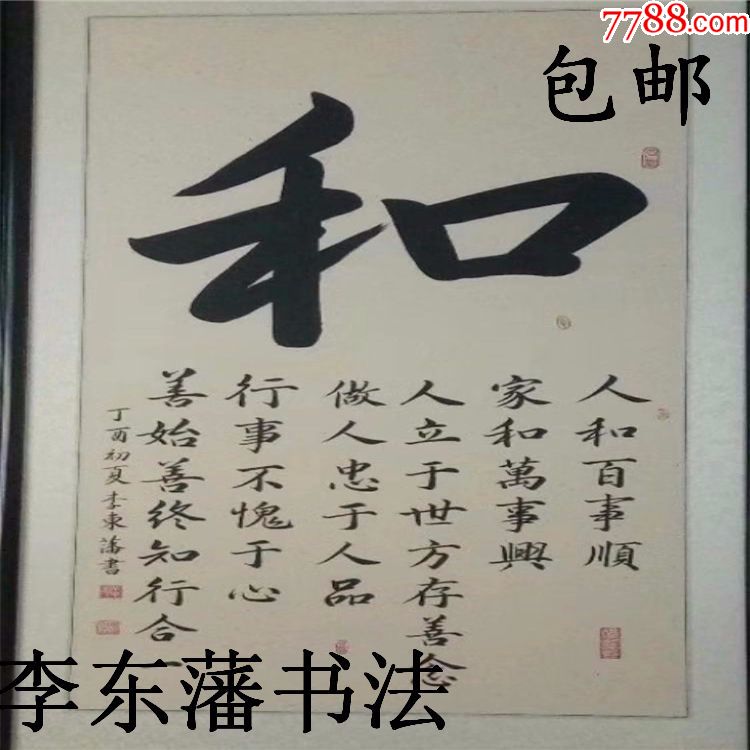 7788.com
包邮
和
人和百事順
家和萬事興
人立于世方存善念
做人忠于人品
行事不愧于心
善始善終知行合一
丁酉初夏李東藩書
李东藩书法